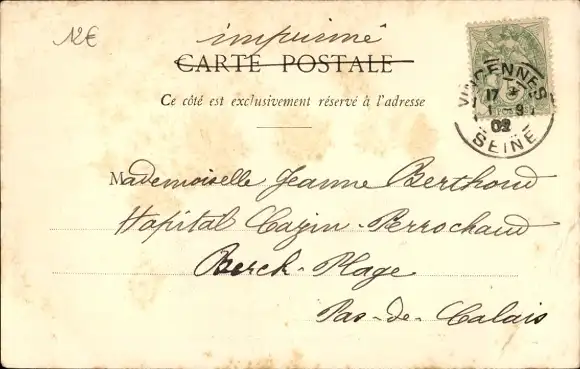 12€
imprimé
CARTE POSTALE
Ce côté est exclusivement réservé à l'adresse
VINCENNES
17
9
02
SEINE
Mademoiselle Jeanne Berthoud
Hopital Cazin-Perrochaud
Berck-Plage
Pas-de-Calais